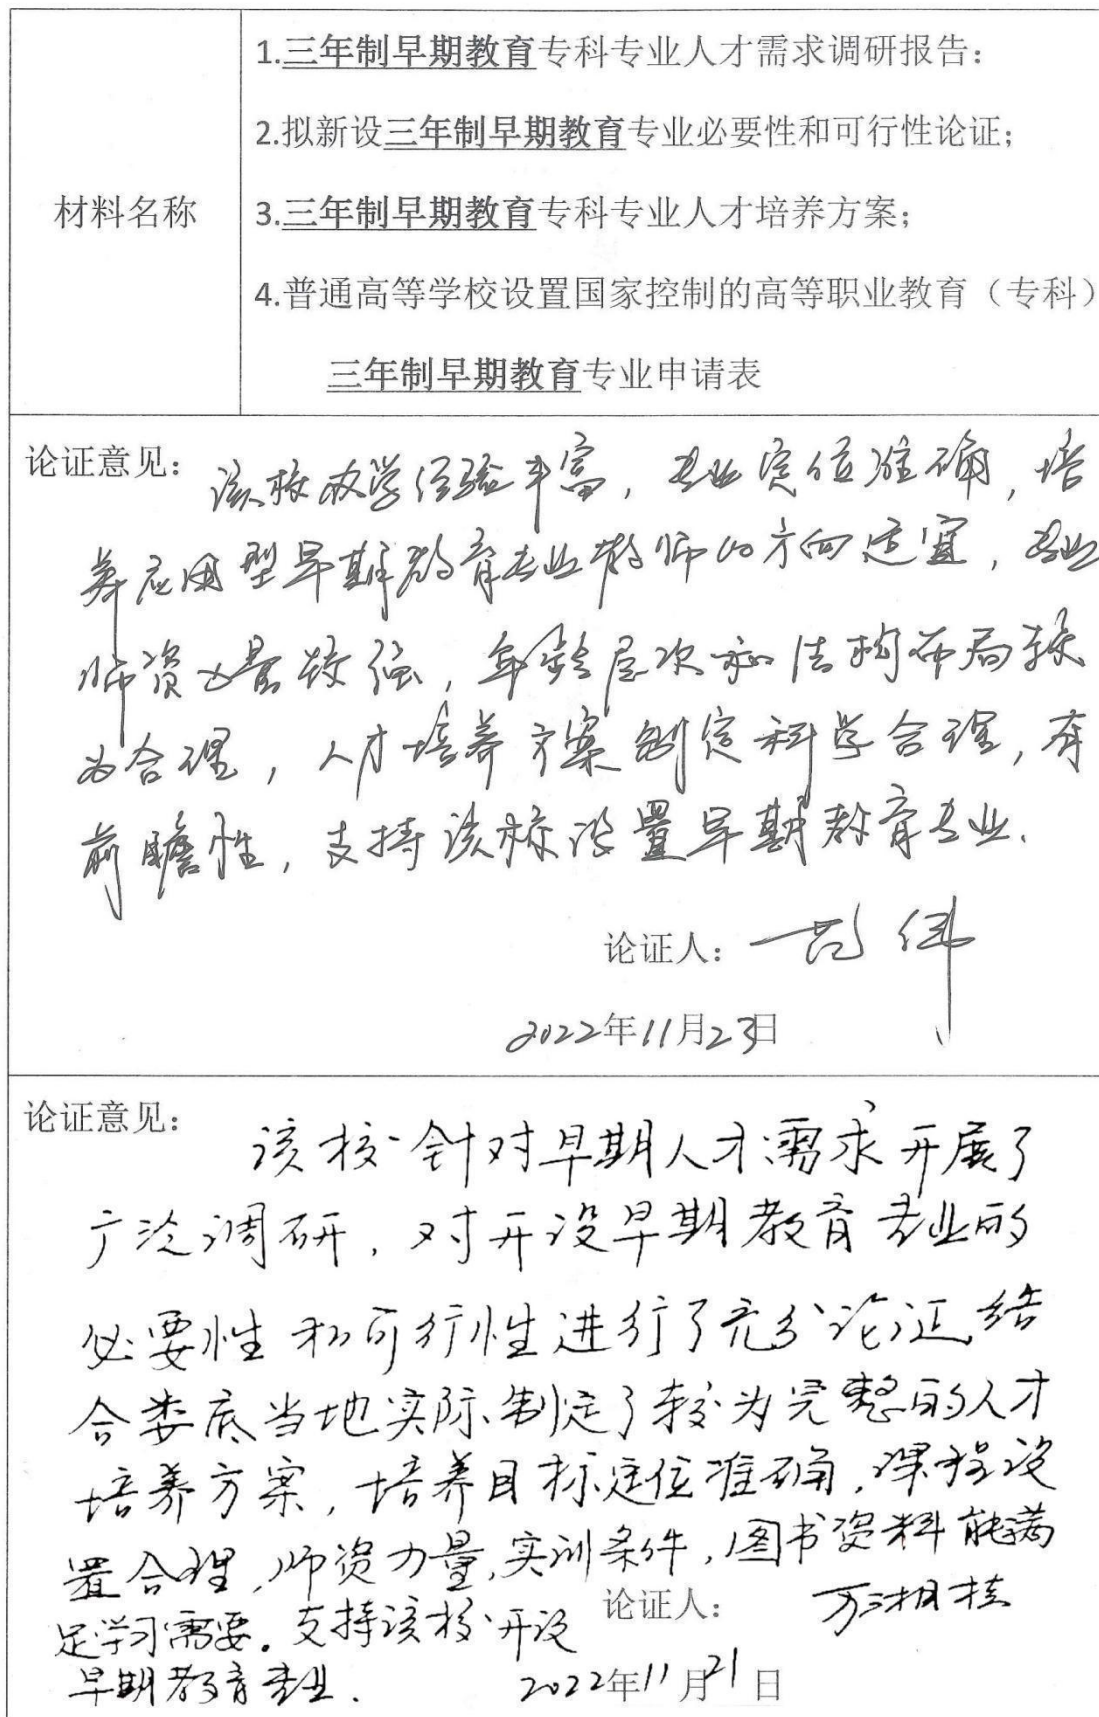 1.三年制早期教育专科专业人才需求调研报告：
2.拟新设三年制早期教育专业必要性和可行性论证；
材料名称
3.三年制早期教育专科专业人才培养方案；
4.普通高等学校设置国家控制的高等职业教育（专科）
三年制早期教育专业申请表
论证意见：
该校办学经验丰富，专业定位准确，培
养应用型早期教育专业教师的方向适宜，专业
师资力量较强，年龄层次和结构布局较
为合理，人才培养方案制定科学合理，有
前瞻性，支持该校设置早期教育专业.
论证人：
2022年11月23日
论证意见：
该校针对早期人才需求开展了
广泛调研，对开设早期教育专业的
必要性和可行性进行了充分论证,结
合娄底当地实际、制定了较为完整的人才
培养方案，培养目标定位准确，课程设
置合理,师资力量,实训条件,图书资料能满
足学习需要。支持该校开设
早期教育专业.
论证人：万湘桂
2022年11月21日